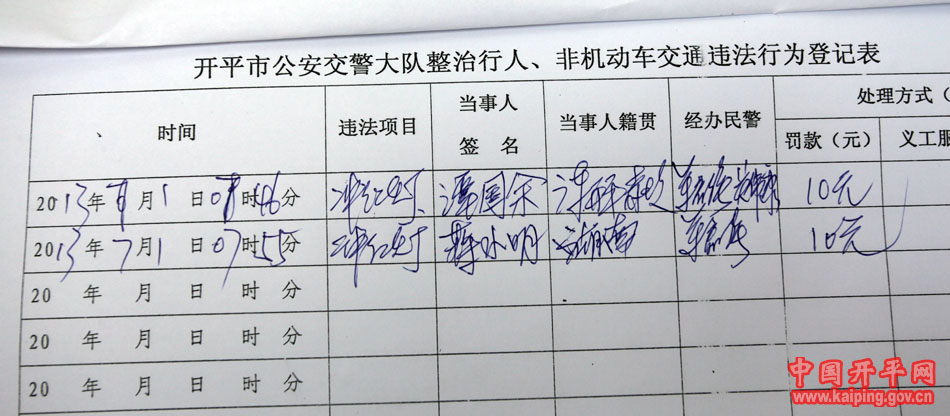 开平市公安交警大队整治行人、非机动车交通违法行为登记表
、 时间 违法项目 当事人签 名 当事人籍贯 经办民警 处理方式（
罚款（元） 义工服
2013年7月1日07时46分 冲红灯 国 10元
2013年7月1日07时55分 冲红灯 小明 湖南 10元
20 年 月 日 时 分
20 年 月 日 时 分
20 年 月 日 时 分
中国开平网
www.kaiping.gov.cn